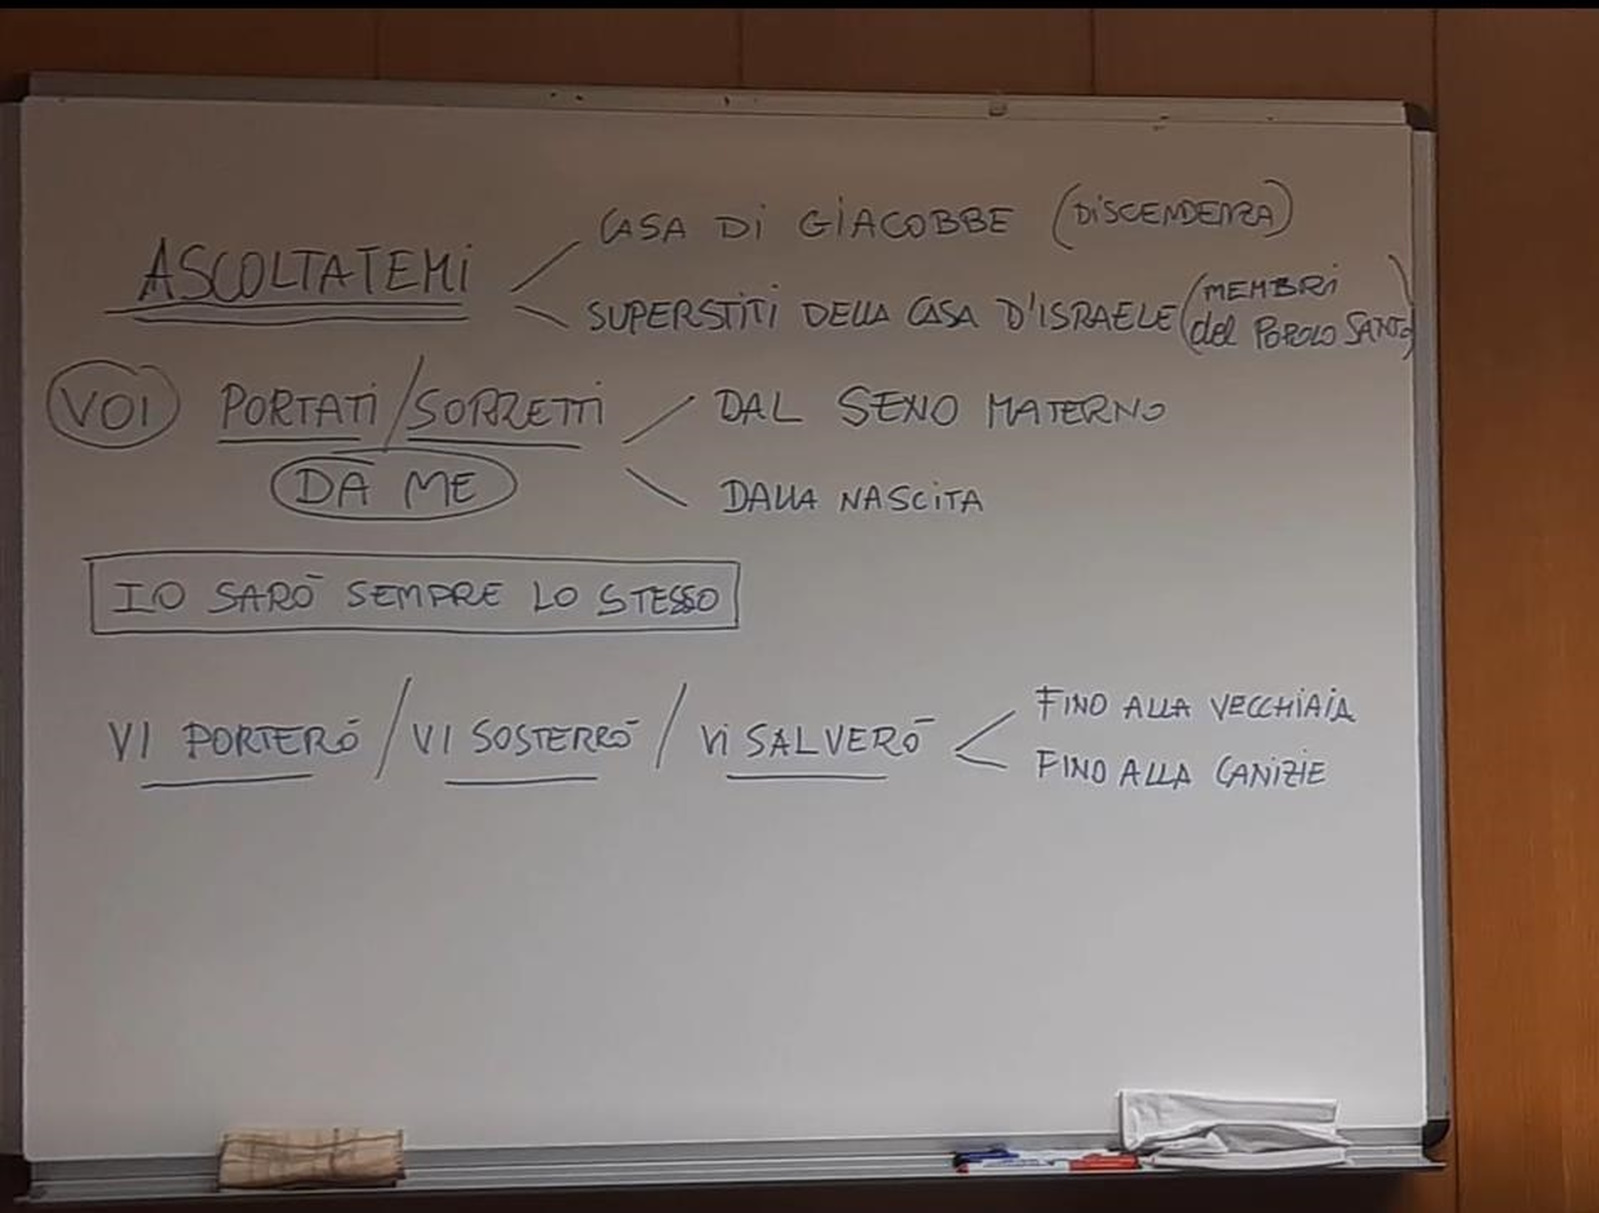 ASCOLTATEMI
CASA DI GIACOBBE (DISCENDENZA)
SUPERSTITI DELLA CASA D'ISRAELE (MEMBRI
del POPOLO SANTO)
VOI PORTATI / SORRETTI
DAL SENO MATERNO
DA ME
DALLA NASCITA
IO SARÒ SEMPRE LO STESSO
VI PORTERÒ / VI SOSTERRÒ / VI SALVERÒ
FINO ALLA VECCHIAIA
FINO ALLA CANIZIE